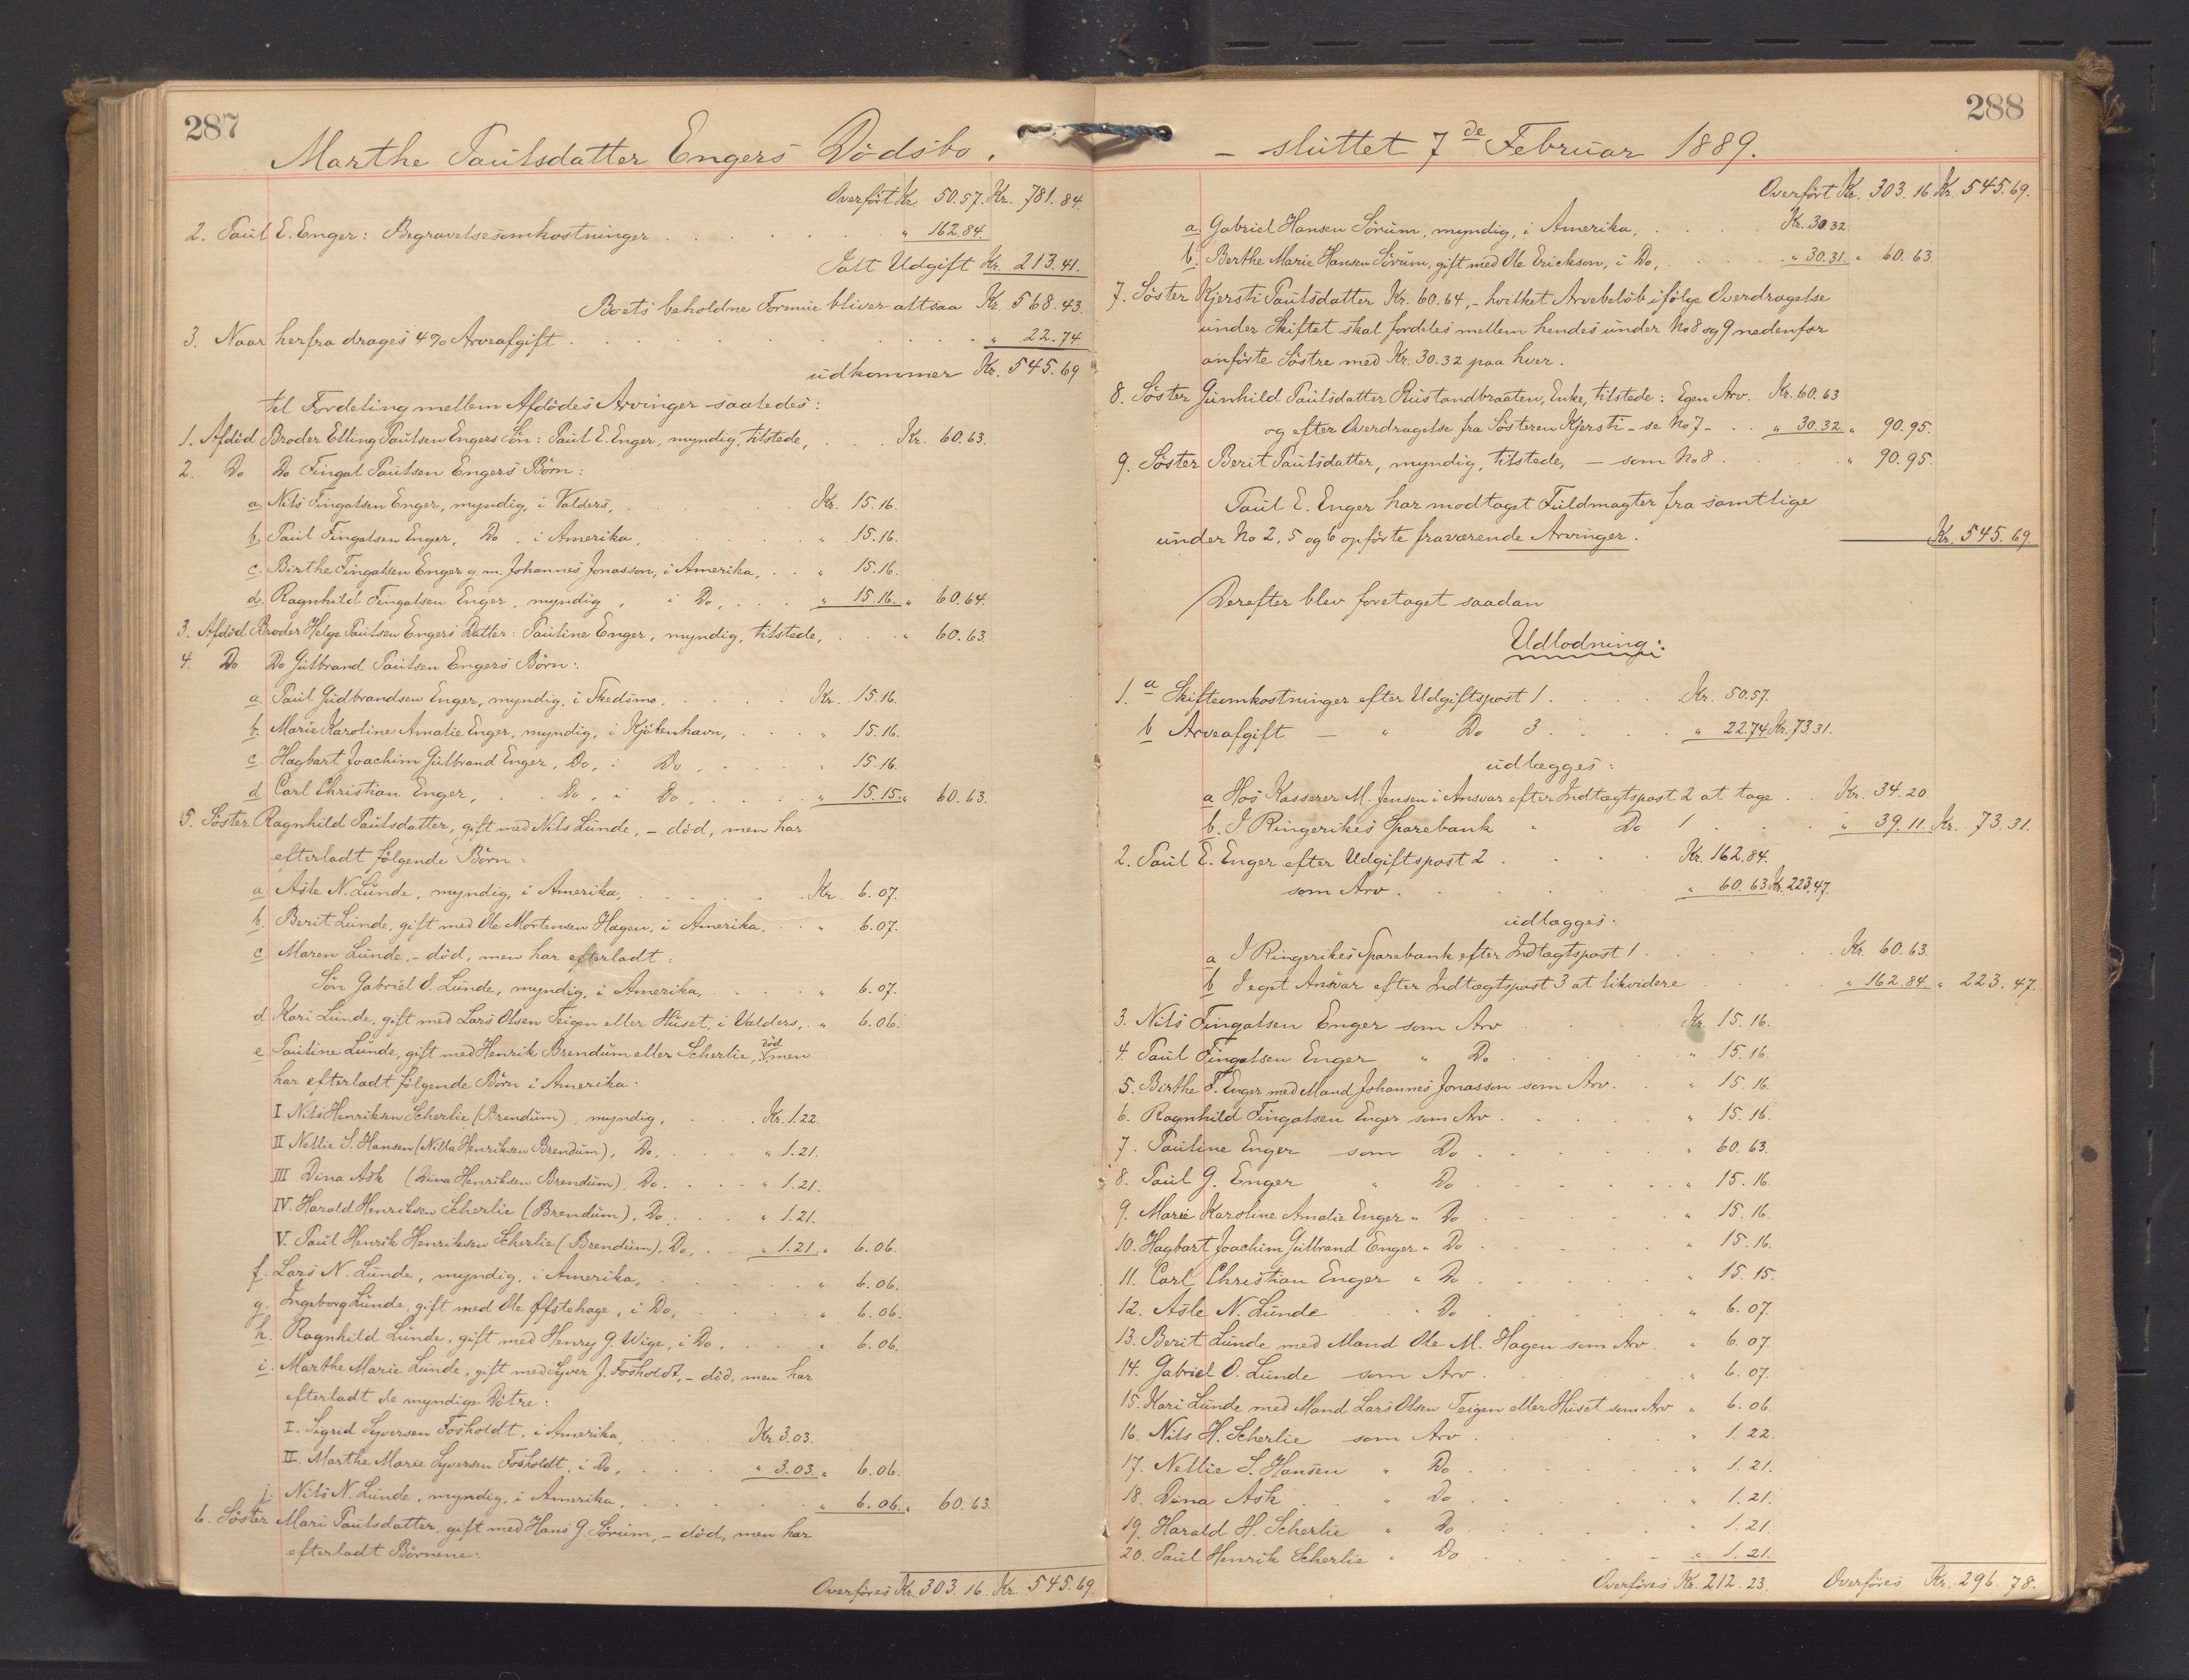 287
Marthe Paulsdatter Engers Dödsbo.
Overfört Kr. 50.57. Kr. 781.84.
2. Paul E. Enger: Begravelsesomkostninger . . . . . . " 162.84.
Ialt Udgift Kr. 213.41.
Boets beholdne Formue bliver altsaa Kr. 568.43.
3. Naar herfra drages 4% Arveafgift . . . . . . . . " 22.74.
udkommer Kr. 545.69
til Fordeling mellem Afdödes Arvinger saaledes:
1. Afdöd Broder Elling Paulsen Engers Sön: Paul E. Enger, myndig, tilstede, . . . Kr. 60.63.
2. Do Do Fingal Paulsen Engers Börn:
a. Nils Fingalsen Enger, myndig, i Valders, . . . Kr. 15.16.
b. Paul Fingalsen Enger, Do, i Amerika, . . . " 15.16.
c. Birthe Fingalsen Enger g. m. Johannes Jonasson, i Amerika, . . " 15.16.
d. Ragnhild Fingalsen Enger, myndig, i Do, . . . " 15.16. " 60.64.
3. Afdöd Broder Helge Paulsen Engers Datter: Pauline Enger, myndig, tilstede, . . . " 60.63.
4. Do Do Gulbrand Paulsen Engers Börn:
a. Paul Gudbrandsen Enger, myndig, i Skedsmo, . . . Kr. 15.16.
b. Marie Karoline Amalie Enger, myndig, i Kjöbenhavn, . . . " 15.16.
c. Hagbart Joachim Gulbrand Enger, Do, i Do, . . . " 15.16.
d. Carl Christian Enger, . . Do, i Do, . . . " 15.15. " 60.63.
5. Söster Ragnhild Paulsdatter, gift med Nils Lunde, – död, men har
efterladt følgende Börn:
a. Asle N. Lunde, myndig, i Amerika, . . . Kr. 6.07.
b. Berit Lunde, gift med Ole Mortensen Hagen, i Amerika, . . " 6.07.
c. Maren Lunde, – död, men har efterladt:
Sön Gabriel O. Lunde, myndig, i Amerika, . . . " 6.07.
d. Kari Lunde, gift med Lars Olsen Teigen eller Huset, i Valders, . " 6.06.
e. Pauline Lunde, gift med Henrik Brendum eller Scherlie, död men
har efterladt følgende Börn i Amerika:
I. Nils Henriksen Scherlie (Brendum), myndig, . . . Kr. 1.22.
II. Nellie S. Hansen (Nilla Henriksen Brendum), Do, . . . " 1.21.
III. Dina Ask (Dina Henriksen Brendum), Do. . . . " 1.21.
IV. Harald Henriksen Scherlie (Brendum), Do, . . . " 1.21.
V. Paul Henrik Henriksen Scherlie (Brendum), Do, . . " 1.21. " 6.06.
f. Lars N. Lunde, myndig, i Amerika, . . . " 6.06.
g. Ingeborg Lunde, gift med Ole Øfstehage, i Do, . . . " 6.06.
h. Ragnhild Lunde, gift med Henry G. Wige, i Do, . . . " 6.06.
i. Marthe Marie Lunde, gift med Syver J. Fosholdt, – död, men har
efterladt de myndige Dötre:
I. Sigrid Syversen Fosholdt, i Amerika, . . . Kr. 3.03.
II. Marthe Marie Syversen Fosholdt, i Do, . . . " 3.03. " 6.06.
j. Nils N. Lunde, myndig, i Amerika, . . . " 6.06. " 60.63.
6. Söster Mari Paulsdatter, gift med Hans G. Sörum, – död, men har
efterladt Börnene:
Overføres Kr. 303.16. Kr. 545.69.
288
– sluttet 7de Februar 1889.
Overfört Kr. 303.16 Kr. 545.69.
a. Gabriel Hansen Sörum, myndig, i Amerika, . . . Kr. 30.32.
b. Berthe Marie Hansen Sörum, gift med Ole Erickson, i Do, . . . " 30.31. " 60.63.
7. Söster Kjersti Paulsdatter Kr. 60.64, – hvilket Arvebelöb ifølge Overdragelse
under Skiftet skal fordeles mellem hendes under No 8 og 9 nedenfor
anförte Söstre med Kr. 30.32 paa hver.
8. Söster Gunhild Paulsdatter Rustandbraaten, Enke, tilstede: Egen Arv. Kr. 60.63
og efter Overdragelse fra Søsteren Kjersti – se No 7 – . . " 30.32. " 90.95.
9. Söster Berit Paulsdatter, myndig, tilstede, – som No 8 . . . " 90.95.
Paul E. Enger har modtaget Fuldmagter fra samtlige
under No 2, 5 og 6 opførte fraværende Arvinger.
Kr. 545.69.
Derefter blev foretaget saadan
Udlodning:
1. a Skifteomkostninger efter Udgiftspost 1 . . . Kr. 50.57.
b Arveafgift – " Do 3 . . . " 22.74 Kr. 73.31.
udlægges:
a Hos Kasserer M. Jensen i Ansvar efter Indtægtspost 2 at tage . . Kr. 34.20.
b. I Ringerikes Sparebank " Do 1 . . . " 39.11. Kr. 73.31.
2. Paul E. Enger efter Udgiftspost 2 . . . Kr. 162.84.
som Arv . . . " 60.63 Kr. 223.47.
udlægges:
a I Ringerikes Sparebank efter Indtægtspost 1 . . . Kr. 60.63.
b I eget Ansvar efter Indtægtspost 3 at likvidere . . . " 162.84 " 223.47.
3. Nils Fingalsen Enger som Arv . . . Kr. 15.16.
4. Paul Fingalsen Enger " Do . . . " 15.16.
5. Birthe F. Enger med Mand Johannes Jonasson som Arv. . " 15.16.
6. Ragnhild Fingalsen Enger som Arv . . . " 15.16.
7. Pauline Enger som Do . . . " 60.63.
8. Paul G. Enger " Do . . . " 15.16.
9. Marie Karoline Amalie Enger " Do . . . " 15.16.
10. Hagbart Joachim Gulbrand Enger " Do . . . " 15.16.
11. Carl Christian Enger " Do . . . " 15.15.
12. Asle N. Lunde " Do . . . " 6.07.
13. Berit Lunde med Mand Ole M. Hagen som Arv . " 6.07.
14. Gabriel O. Lunde som Arv . . . " 6.07.
15. Kari Lunde med Mand Lars Olsen Teigen eller Huset som Arv " 6.06.
16. Nils H. Scherlie som Arv . . . " 1.22.
17. Nellie S. Hansen " Do . . . " 1.21.
18. Dina Ask " Do . . . " 1.21.
19. Harald H. Scherlie " Do . . . " 1.21.
20. Paul Henrik Scherlie " Do . . . " 1.21.
Overføres Kr. 212.23. Overføres Kr. 296.78.